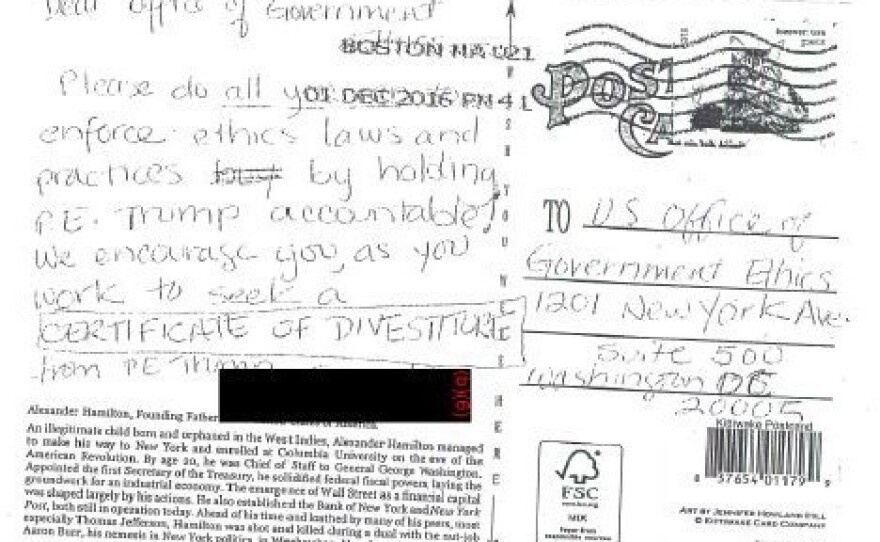 Dear Office of Government
BOSTON MA 021
01 DEC 2016 PM 4 L
Please do all you
enforce ethics laws and
practices by holding
P.E. Trump accountable!
We encourage you, as you
work to seek a
CERTIFICATE OF DIVESTITURE
from PE Trump
(b)(6)
Alexander Hamilton, Founding Father
States of America.
An illegitimate child born and orphaned in the West Indies, Alexander Hamilton managed
to make his way to New York and enrolled at Columbia University on the eve of the
American Revolution. By age 20, he was Chief of Staff to General George Washington.
Appointed the first Secretary of the Treasury, he solidified federal fiscal powers, laying the
groundwork for an industrial economy. The emergence of Wall Street as a financial capital
was shaped largely by his actions. He also established the Bank of New York and New York
Post, both still in operation today. Ahead of his time and loathed by many of his peers, most
especially Thomas Jefferson, Hamilton was shot and killed during a dual with the nut-job
Aaron Burr, his nemesis in New York politics, in
POST
CA
TO US Office of
Government Ethics
1201 New York Ave.
Suite 500
Washington DC
20005
Kittiwake Postcard
37654 01179 9
FSC
MIX
Paper from
responsible sources
ART BY JENNIFER HOWLAND HILL
© KITTIWAKE CARD COMPANY